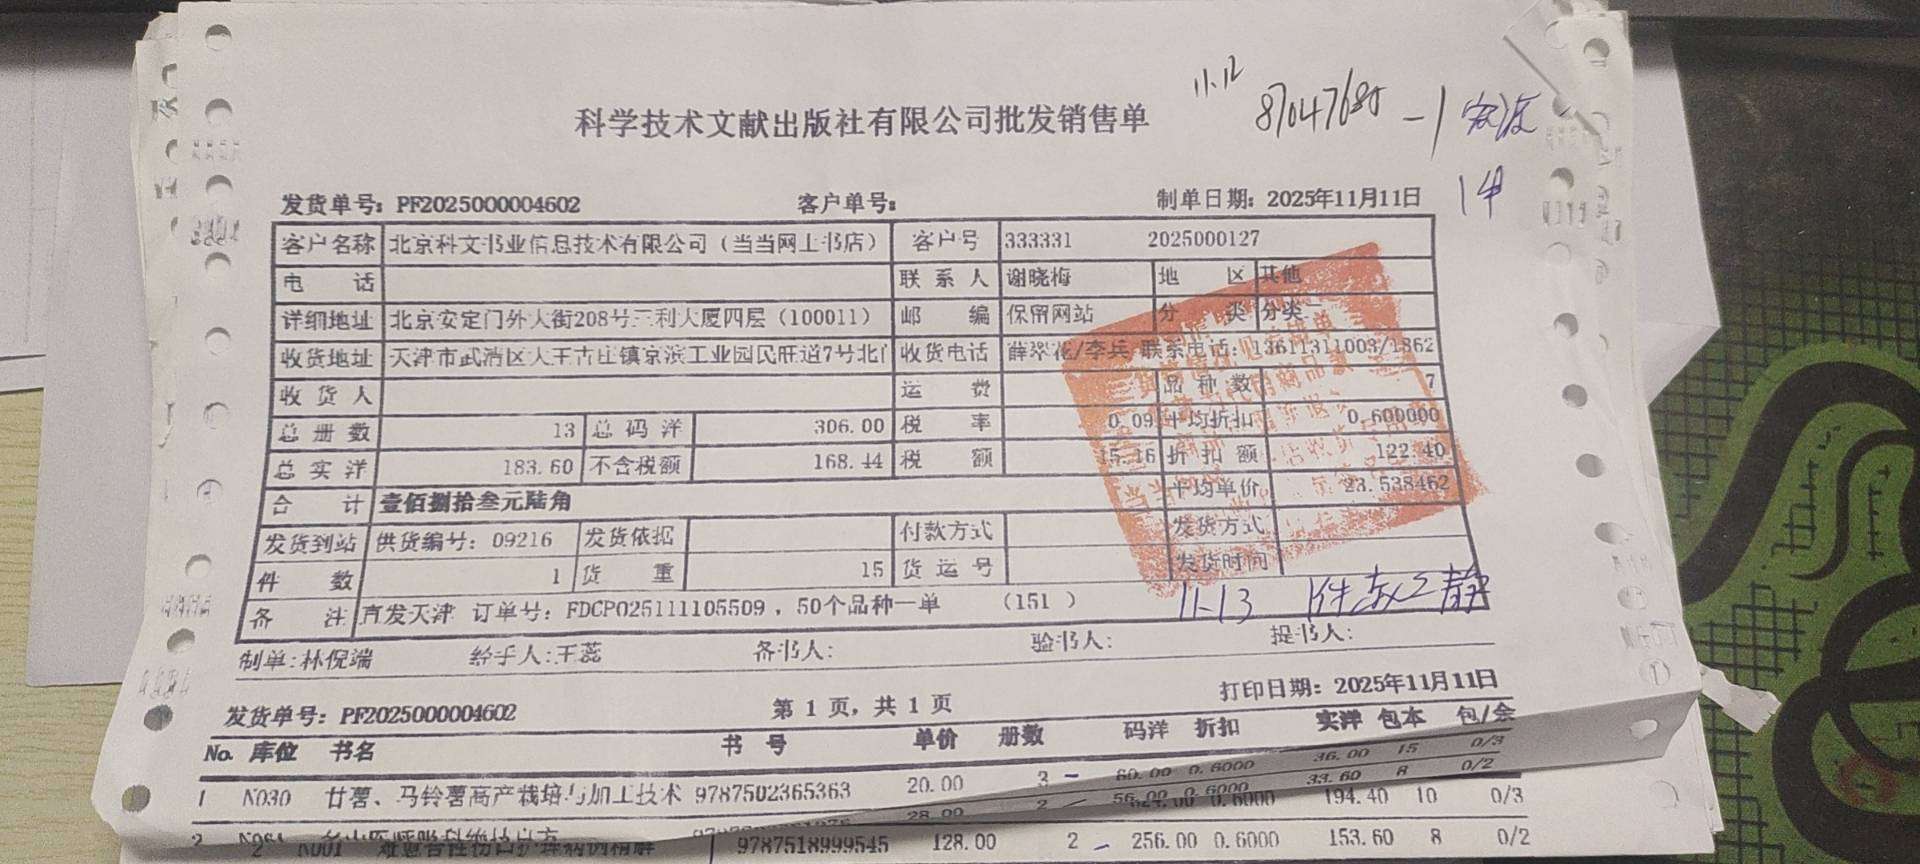 11.12
87047680-1
科学技术文献出版社有限公司批发销售单
1件
发货单号: PF2025000004602 客户单号: 制单日期: 2025年11月11日
客户名称 北京科文书业信息技术有限公司（当当网上书店） 客户号 333331 2025000127
电 话 联 系 人 谢晓梅 地 区 其他
详细地址 北京安定门外大街208号三利大厦四层（100011） 邮 编 保留网站 分 类 分类一
收货地址 天津市武清区大王古庄镇京滨工业园民旺道7号北门 收货电话 薛翠花/李兵 联系电话: 13611311003/1862
收 货 人 运 费 品 种 数 7
总 册 数 13 总 码 洋 306.00 税 率 0.09 平均折扣 0.600000
总 实 洋 183.60 不含税额 168.44 税 额 15.16 折 扣 额 122.40
合 计 壹佰捌拾叁元陆角 平均单价 23.538462
发货到站 供货编号: 09216 发货依据 付款方式 发货方式
件 数 1 货 重 15 货 运 号 发货时间
备 注 直发天津 订单号: FDCP025111105509，50个品种一单 （151 ）
11-13
制单:林倪端 经手人:王蕊 备书人: 验书人: 提书人:
发货单号: PF2025000004602 第 1 页, 共 1 页 打印日期: 2025年11月11日
No. 库位 书名 书 号 单价 册数 码洋 折扣 实洋 包本 包/余
1 N030 甘薯、马铃薯高产栽培与加工技术 9787502365363 20.00 3 60.00 0.6000 36.00 15 0/3
2 28.00 2 56.00 0.6000 33.60 8 0/2
0.6000 194.40 10 0/3
2 N001 9787518999545 128.00 2 256.00 0.6000 153.60 8 0/2